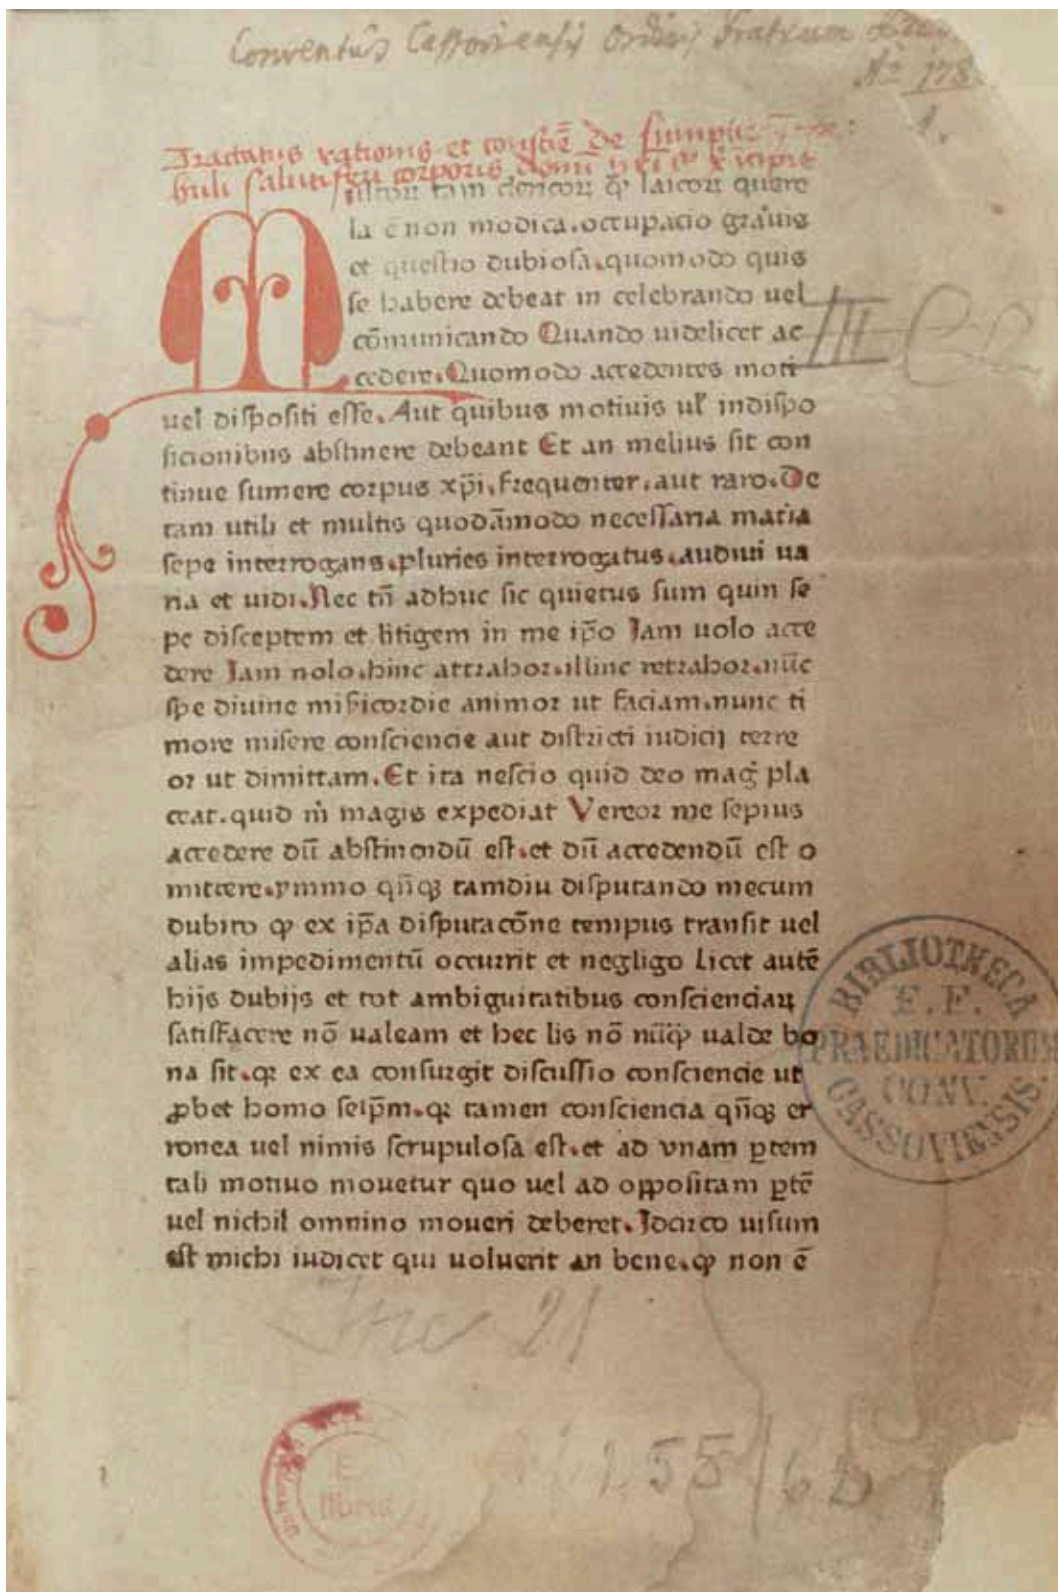 Conventûs Cassoviensis Ordinis Fratrum
Nº 178
1.
Tractatus rationis et consciē de sumptiōe
buli salutiferi corporis domī
ultoꝝ tam clericoꝝ qͣ̄ laicoꝝ quere
M
la ē non modica.occupacio grauis
et questio dubiosa.quomodo quis
se habere debeat in celebrando uel
cōmunicando Quando uidelicet ac
cedere.Quomodo accedentes moti
III
uel dispositi esse.Aut quibus motiuis ul̓ indispo
sicionibus abstinere debeant Et an melius sit con
tinue sumere corpus xp̄i.frequenter.aut raro.De
tam utili et multis quodāmodo necessaria mat̓ia
sepe interrogans.pluries interrogatus.audiui ua
ria et uidi.Nec tn̄ adhuc sic quietus sum quin se
pe disceptem et litigem in me ip̄o Jam uolo acce
dere Jam nolo.hinc attrahor.illinc retrahor.nūc
spe diuine mīcordie animor ut faciam.nunc ti
more misere consciencie aut districti iudicij terre
or ut dimittam.Et ita nescio quid deo mag̓ pla
ceat.quid m̓ magis expediat Vereor me sepius
accedere dū abstinendū est.et dū accedendū est o
mittere.ymmo qn̄qꝫ tamdiu disputando mecum
dubito ꝙ ex ip̄a disputacōne tempus transit uel
alias impedimentū occurrit et negligo Licet autē
hijs dubijs et tot ambiguitatibus conscienciaꝝ
satisfacere nō ualeam et hec lis nō nūqͣ̄ ualde bo
na sit.qꝛ ex ea consurgit discussio consciencie ut
ꝓbet homo seip̄m.qꝛ tamen consciencia qn̄qꝫ er
ronea uel nimis scrupulosa est.et ad vnam ꝑtem
tali motiuo mouetur quo uel ad oppositam ꝑtē
uel nichil omnino moueri deberet.Jdcirco uisum
est michi iudicet qui uoluerit an bene.ꝙ non ē
BIBLIOTHECA
F.F.
PRAEDICATORUM
CONV.
CASSOVIENSIS
Inc 21
Ex
libris